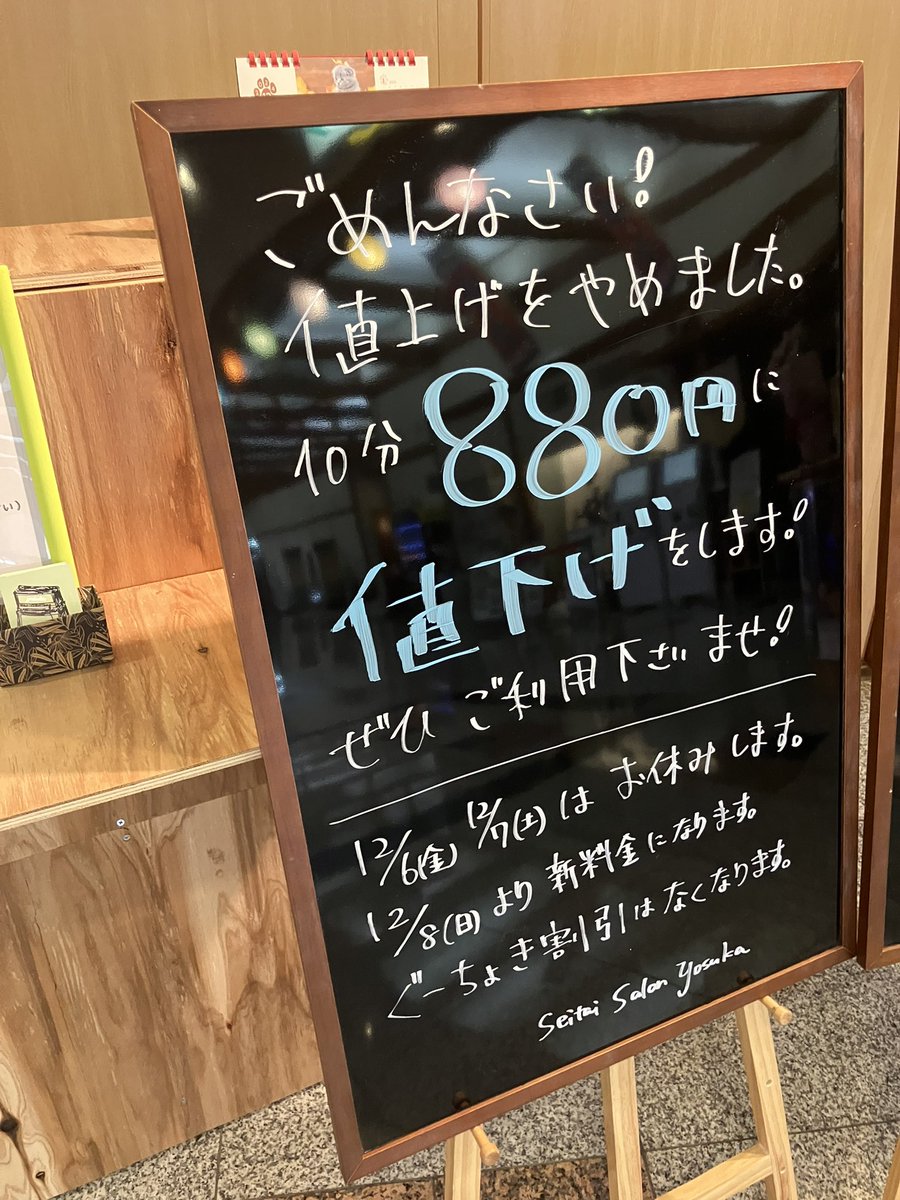 ごめんなさい!
値上げをやめました。
10分 880円に
値下げをします!
ぜひ ご利用下さいませ!
12/6(金) 12/7(土) は お休みします。
12/8(日) より 新料金になります。
ぐーちょき割引はなくなります。
Seitai Salon Yosuka